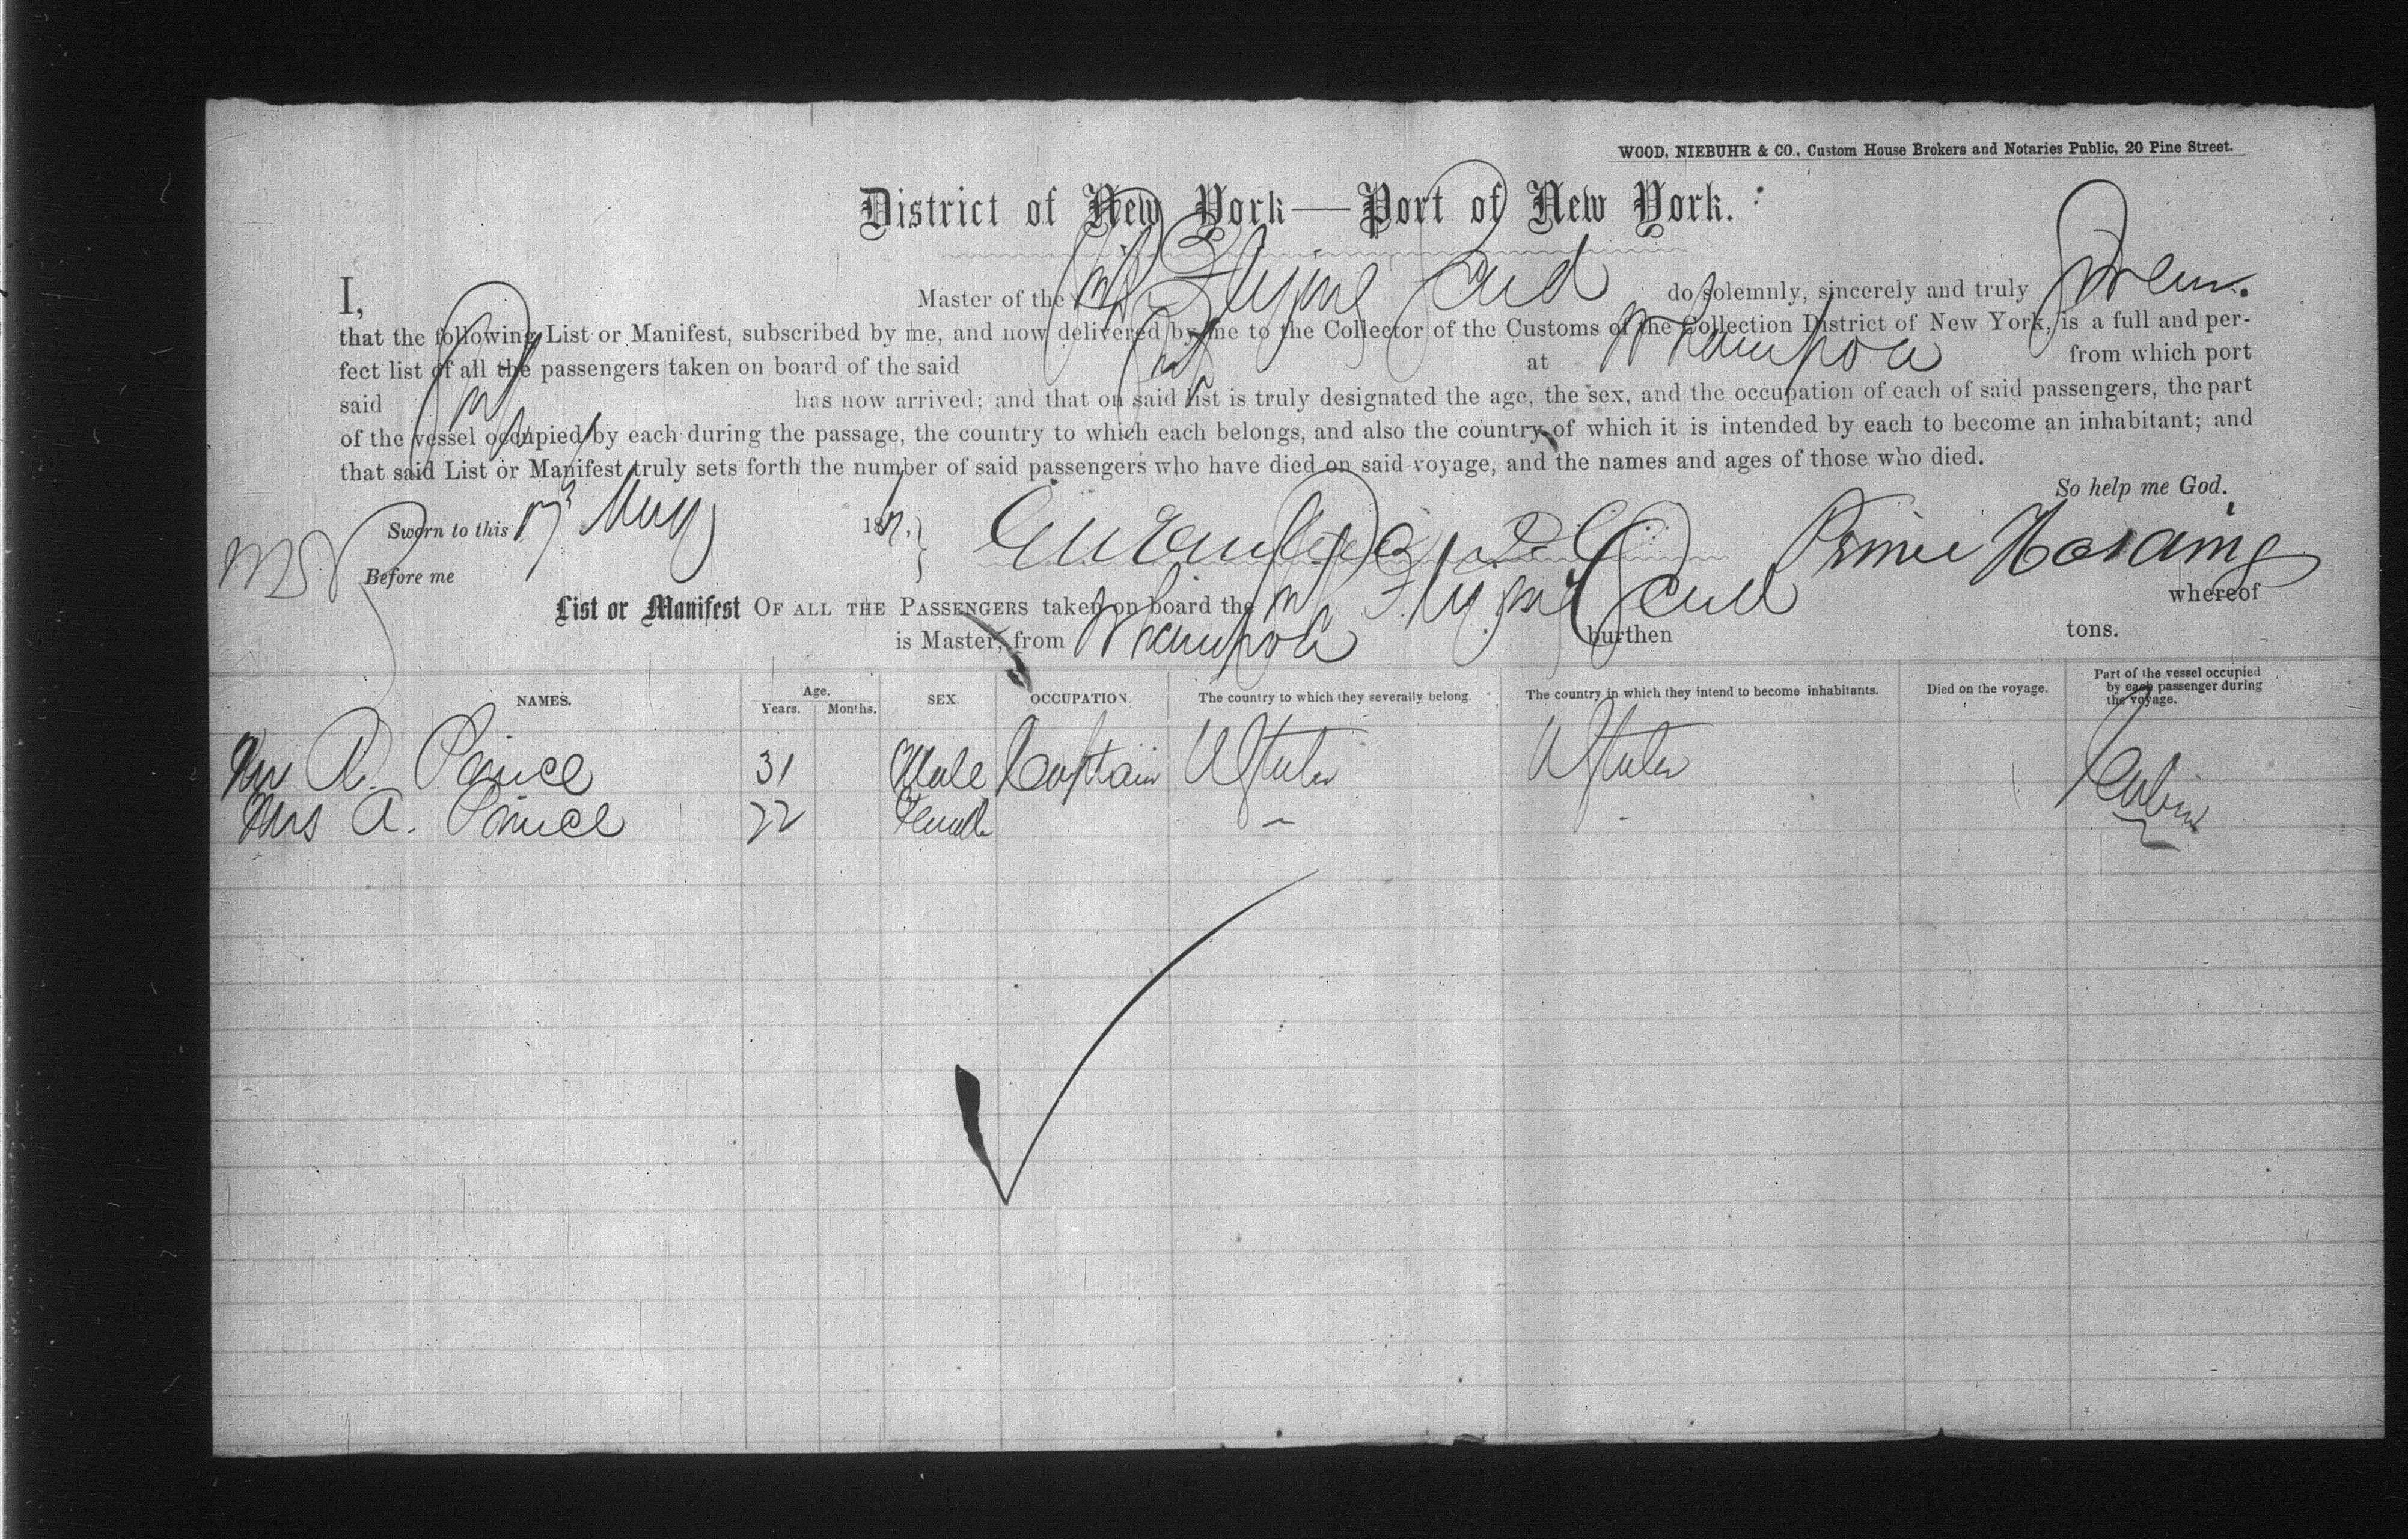 WOOD, NIEBUHR & CO., Custom House Brokers and Notaries Public, 20 Pine Street.
District of New York—Port of New York.
I, Master of the Ship Flying Cud do solemnly, sincerely and truly Swear.
that the following List or Manifest, subscribed by me, and now delivered by me to the Collector of the Customs of the Collection District of New York, is a full and per-
fect list of all the passengers taken on board of the said Ship at Whampoa from which port
said Ship has now arrived; and that on said list is truly designated the age, the sex, and the occupation of each of said passengers, the part
of the vessel occupied by each during the passage, the country to which each belongs, and also the country of which it is intended by each to become an inhabitant; and
that said List or Manifest truly sets forth the number of said passengers who have died on said voyage, and the names and ages of those who died.
So help me God.
Sworn to this 17 May 18
Before me
List or Manifest OF ALL THE PASSENGERS taken on board the Ship Flying Cud whereof
is Master, from Whampoa burthen tons.
NAMES. Age. Years. Months. SEX. OCCUPATION. The country to which they severally belong. The country in which they intend to become inhabitants. Died on the voyage. Part of the vessel occupied by each passenger during the voyage.
Mr A. Prince 31 Male Captain U States U States Cabin
Mrs A. Prince 22 Female " "